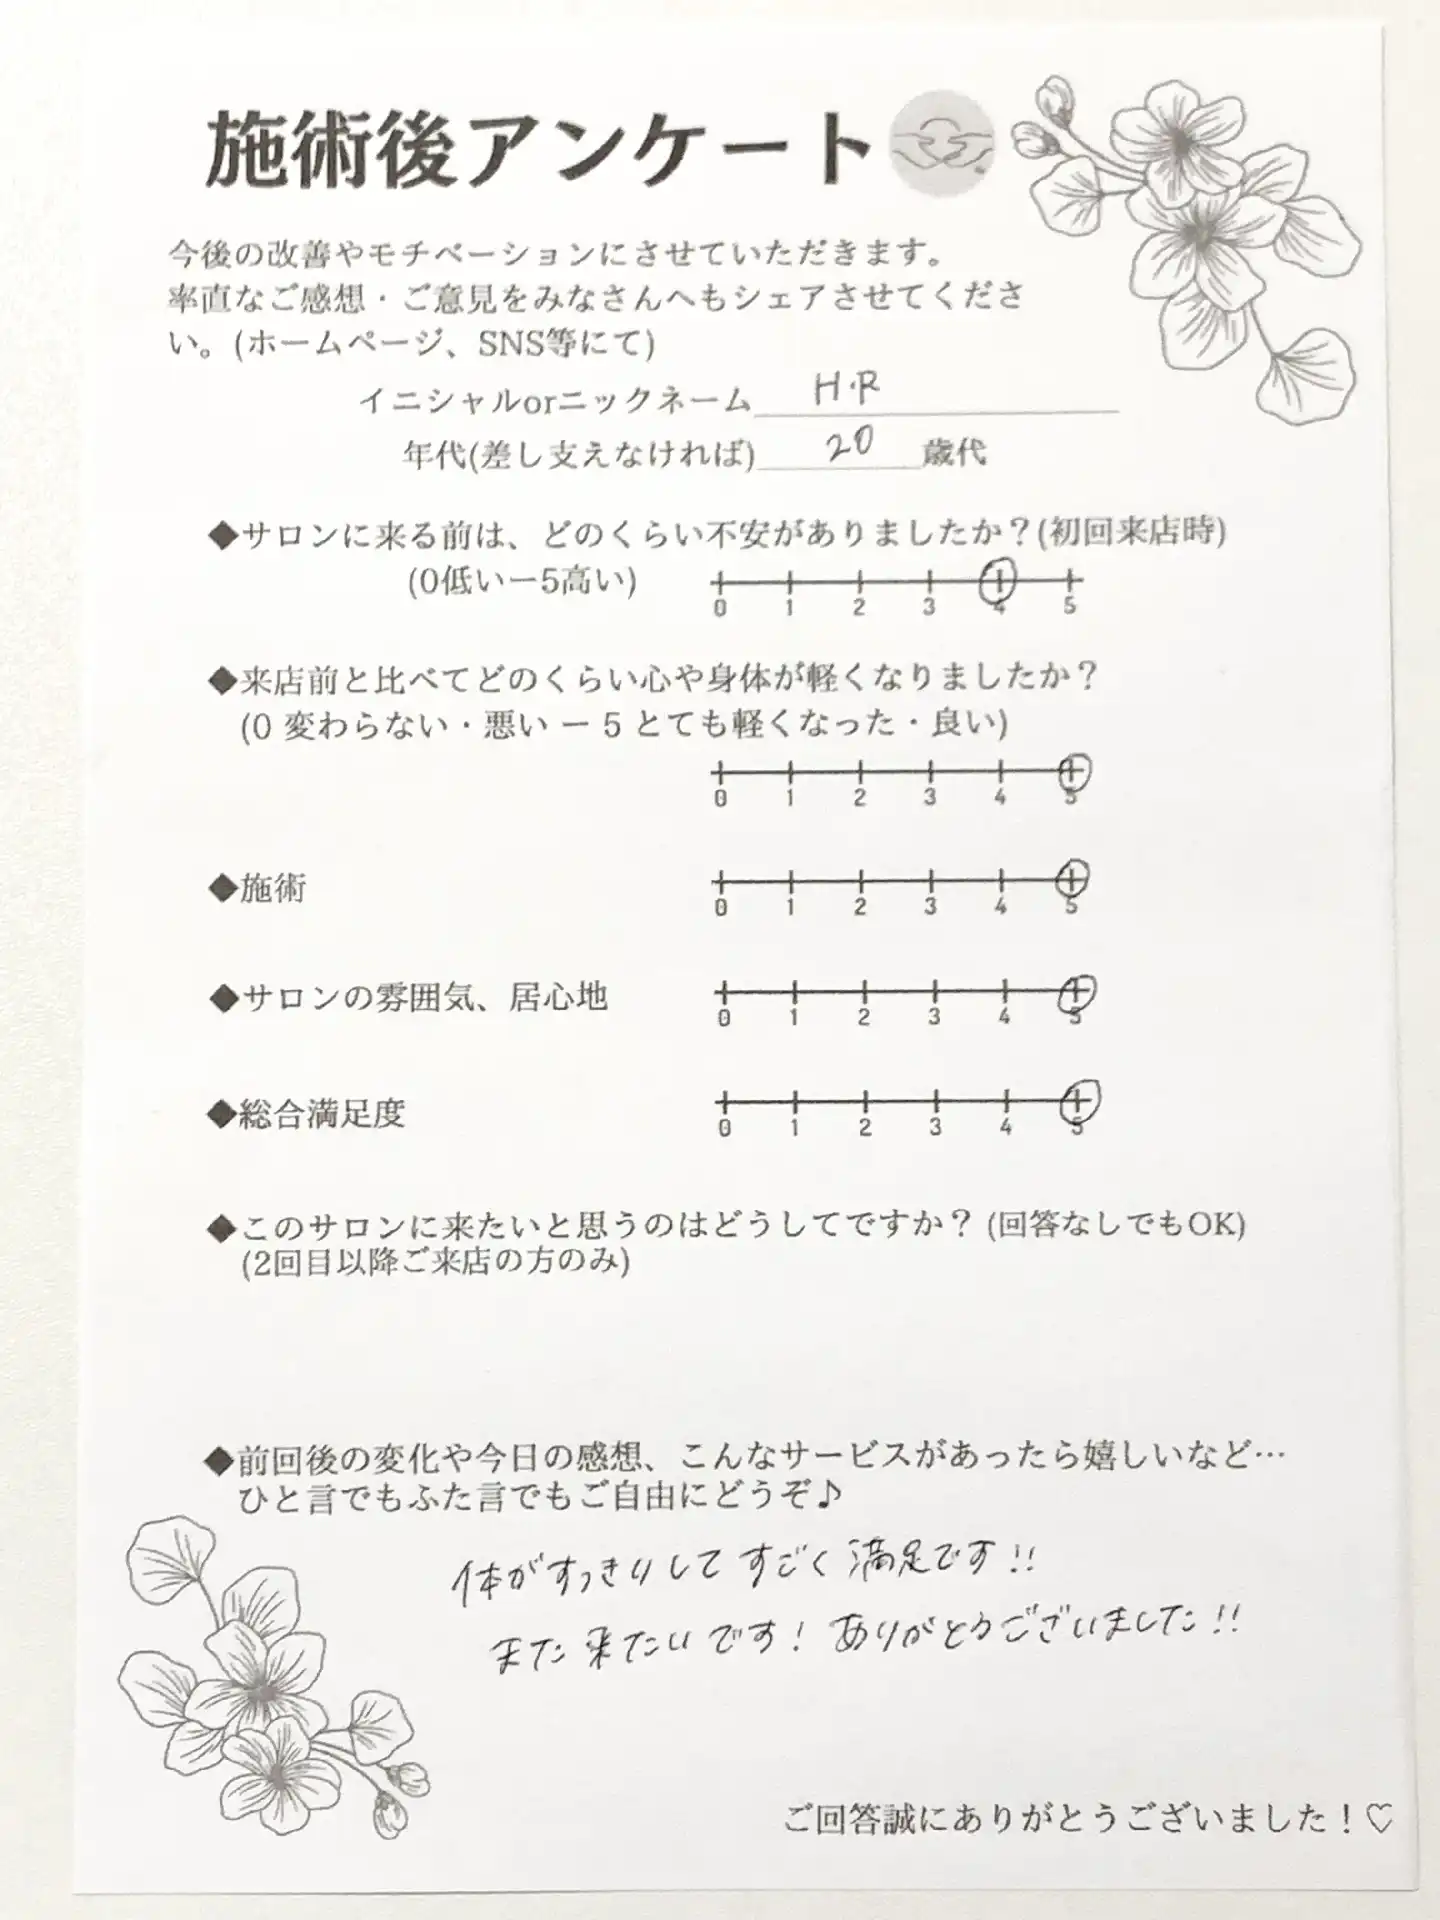 施術後アンケート
今後の改善やモチベーションにさせていただきます。
率直なご感想・ご意見をみなさんへもシェアさせてくださ
い。(ホームページ、SNS等にて)
イニシャルorニックネーム H.R
年代(差し支えなければ) 20 歳代
◆サロンに来る前は、どのくらい不安がありましたか？(初回来店時)
(0低いー5高い)
0 1 2 3 4 5
◆来店前と比べてどのくらい心や身体が軽くなりましたか？
(0 変わらない・悪い ー 5 とても軽くなった・良い)
0 1 2 3 4 5
◆施術
0 1 2 3 4 5
◆サロンの雰囲気、居心地
0 1 2 3 4 5
◆総合満足度
0 1 2 3 4 5
◆このサロンに来たいと思うのはどうしてですか？ (回答なしでもOK)
(2回目以降ご来店の方のみ)
◆前回後の変化や今日の感想、こんなサービスがあったら嬉しいなど…
ひと言でもふた言でもご自由にどうぞ♪
体がすっきりして すごく 満足です!!
また 来たい です! ありがとうございました!!
ご回答誠にありがとうございました！♡